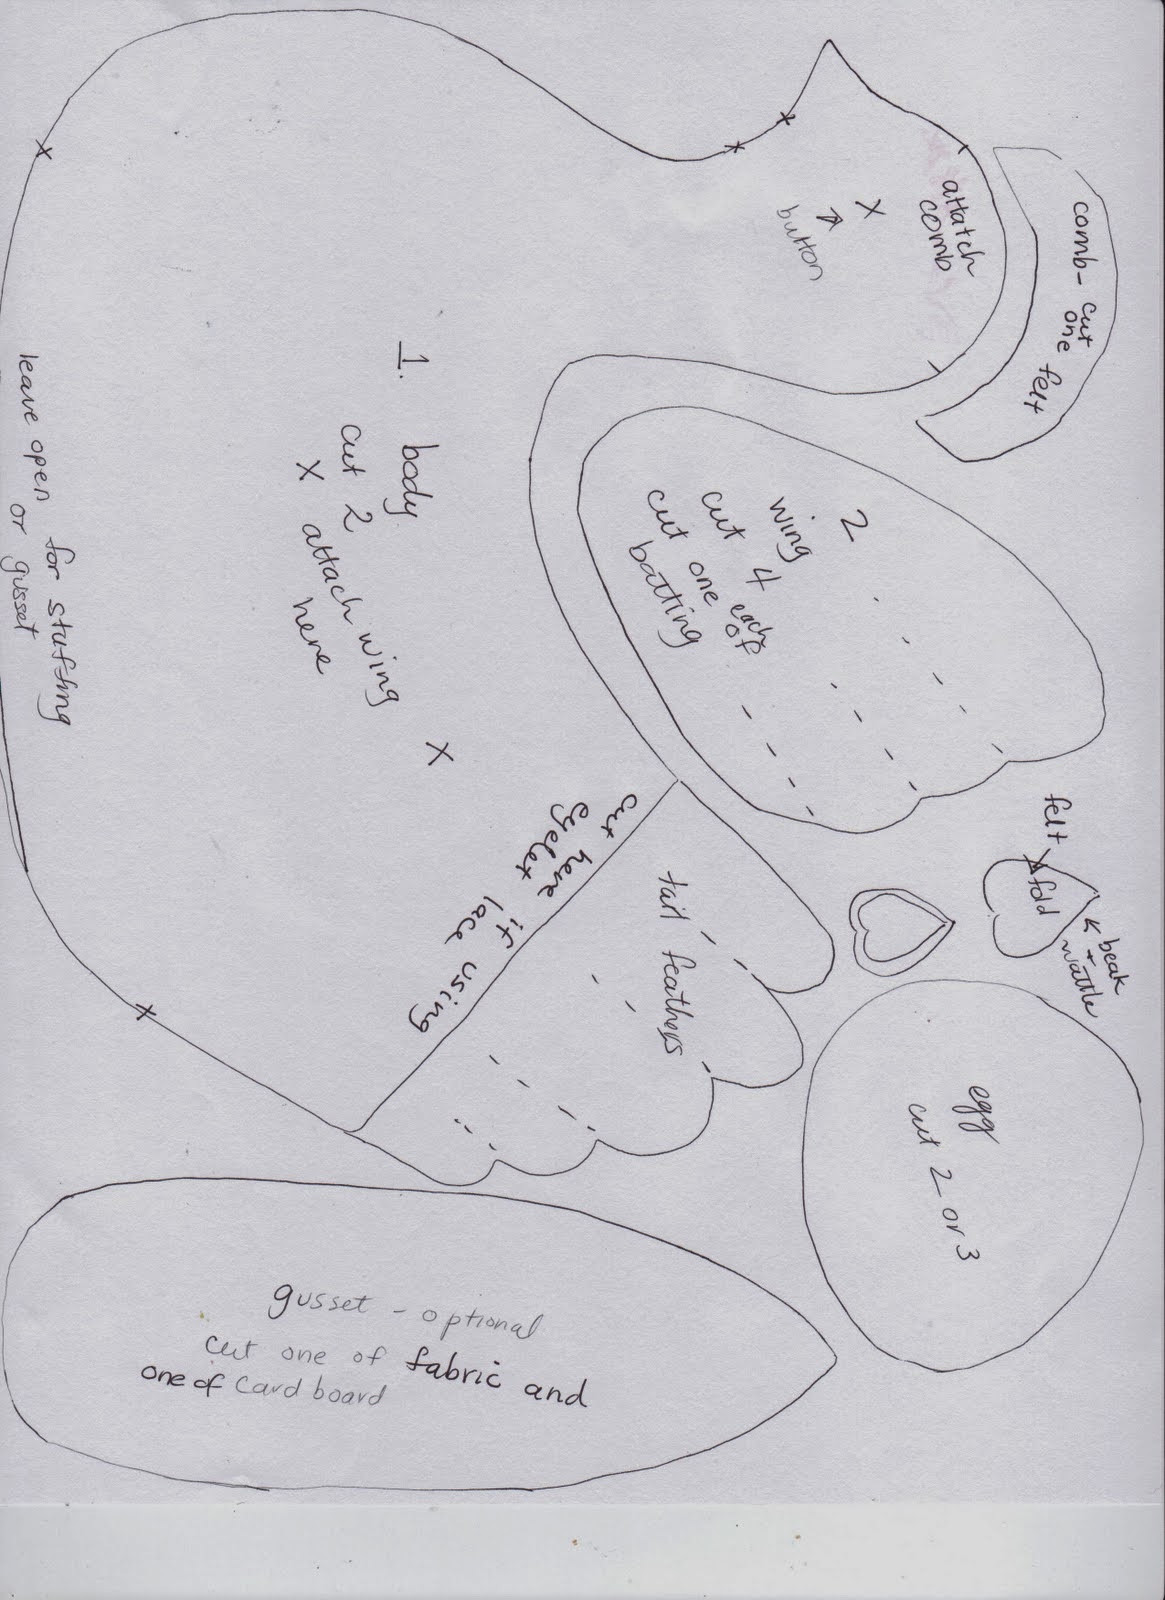 attatch
comb
button
comb- cut
one felt
1. body
cut 2
X attach wing
here
X
leave open for stuffing
or gusset
2
wing
cut 4
cut one each
of
batting
cut here if using
eyelet lace
tail feathers
felt
fold
beak
+ wattle
egg
cut 2 or 3
gusset - optional
cut one of fabric and
one of card board